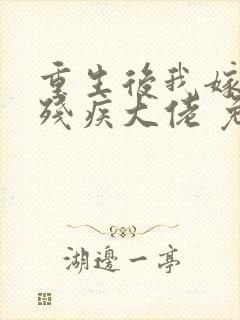 重生後我嫁
殘疾大佬
湖邊一亭